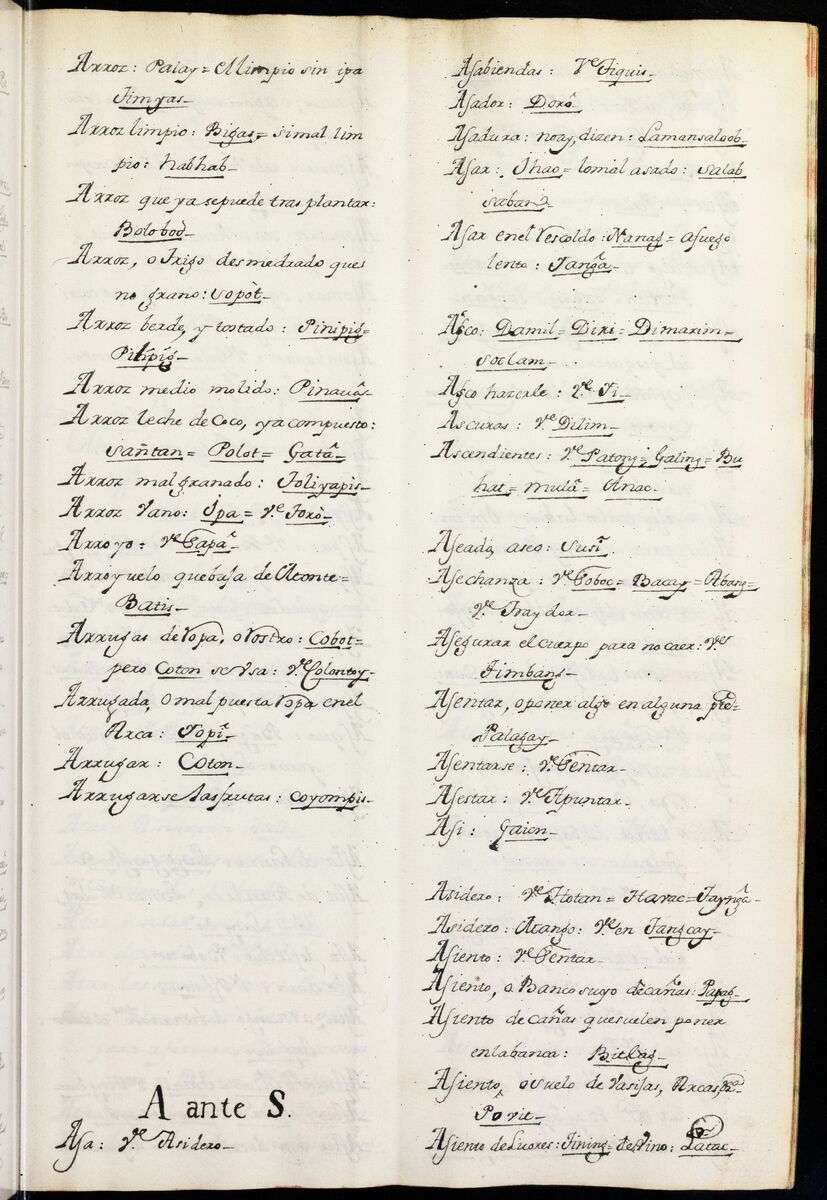 Arroz: Palay= El limpio sin ipa
Timyas_
Arroz limpio: Bigas= si mal lim
pio: habhab_
Arroz que ya se puede trasplantar:
Bolobod_
Arroz, o Trigo desmedrado que es
no grano: Sopòt_
Arroz berde, y tostado: Pinipig=
Pilipig_
Arroz medio molido: Pinauâs_
Arroz leche de Coco, ya compuesto:
Santan= Polot= Gatâ_
Arroz mal granado: Toliyapis_
Arroz Vano: Ipa= Ve. Torò_
Arroyo: Ve. Sapâ_
Arroyuelo que baja de Monte=
Batis_
Arrugas de ropa, o rostro: Cobot=
pero Coton se Vsa: Ve. Colontoy_
Arrugada, o mal puesta ropa en el
Arca: Topî_
Arrugar: Coton_
Arrugarse las frutas: Coyompis_
A ante S.
Asa: Ve. Asidero_
Asabiendas: Ve. Tiquis_
Asador: Dorô_
Asadura: no ay, dizen: Lamansaloob_
Asar: Ihao= lo mal asado: Salab
saban_
Asar en el Rescoldo: Nanag= a fuego
lento: Tangâ_
Asco: Damil= Diri= Dimarim=
Soclam_
Asco hazerle: Ve. Yi_
Ascuras: Ve. Dilim_
Ascendientes: Ve. Patong= Galing= Bu
hat= mulâ= Anac_
Aseado, aseo: Susî_
Asechanza: Ve. Soboc= Bacay= Abang=
Ve. Traydor_
Asegurar el cuerpo para no caer: Ve.
Timbang_
Asentar, o poner algo en alguna pte=
Palagay_
Asentarse: Ve. Sentar_
Asestar: Ve. Apuntar_
Asi: Gaion_
Asidero: Ve. Hotan= Havac= Tayngâ_
Asidero: Mango: Ve. en Tangcay_
Asiento: Ve. Sentar_
Asiento, o Banco suyo de cañas: Papag_
Asiento de cañas que suelen poner
en la banca: Bitlag_
Asiento, o suelo de Vasijas, Arcas,
Povit_
Asiento de Licores: Tining= de Vino: Latac_